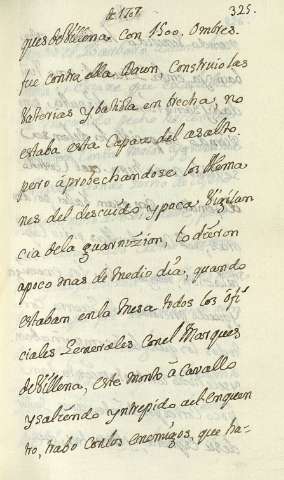 de 1707. 325.
ques de Villena con 1500. Ombres.
fue contra ella Daun, Construio las
Vaterias y batida en brecha, no
estaba esta Capaz del asalto.
pero áprobechandose los Alema
nes del descuido y poca Vigilan
cia dela guarnizion, to dieron
apoco mas de medio dia, quando
estaban en la mesa todos los ofi
ciales Generales con el Marques
de Villena, este montó á Cavallo
y saliendo yntrepido al enquen
tro, trabó con los enemigos, que ha-